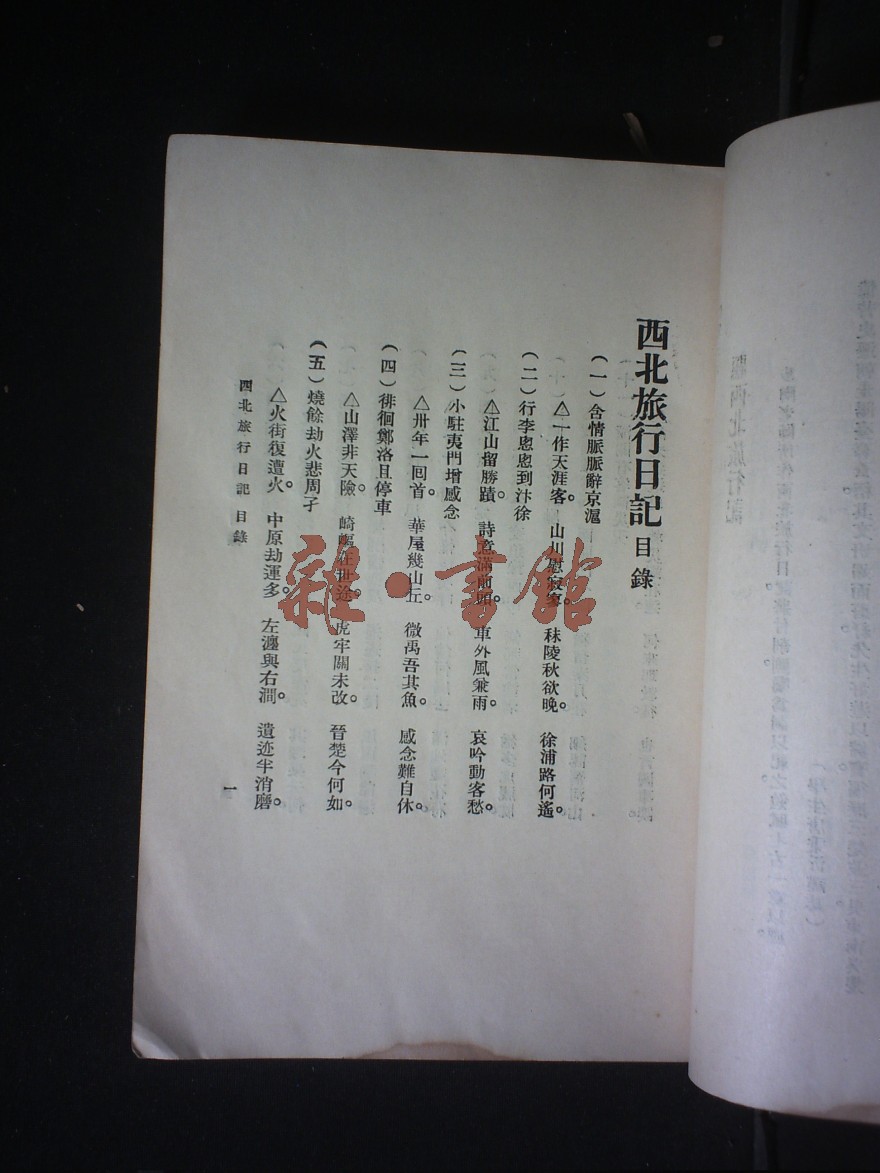 西北旅行日記 目錄
（一）含情脈脈辭京滬
△一作天涯客。 山川慰寂寥。 秣陵秋欲晚。 徐浦路何遙。
（二）行李恖恖到汴徐
△江山留勝蹟。 詩意滿前頭。 車外風兼雨。 哀吟動客愁。
（三）小駐夷門增感念
△卅年一回首。 華屋幾山丘。 微禹吾其魚。 感念難自休。
（四）徘徊鄭洛且停車
△山澤非天險。 崎嶇在世途。 虎牢關未改。 晉楚今何如。
（五）燒餘劫火悲周孑
△火街復遭火。 中原劫運多。 左瀍與右澗。 遺迹半消磨。
西北旅行日記 目錄
一
雜·書館